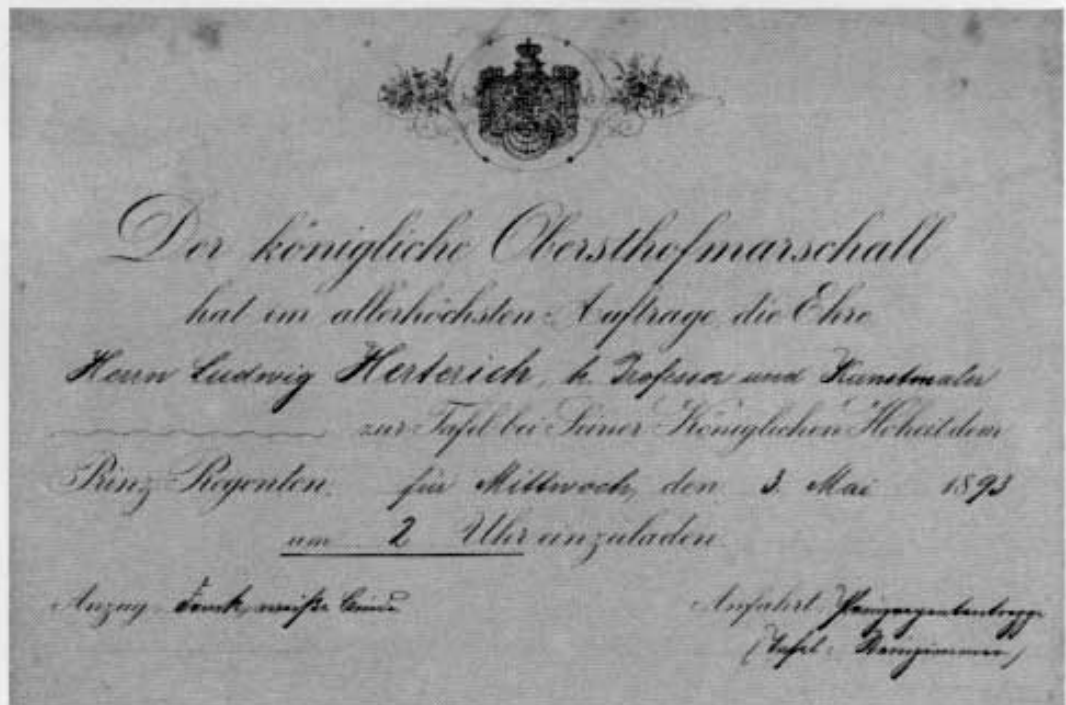 Der königliche Obersthofmarschall
hat im allerhöchsten Auftrage die Ehre
Herrn Ludwig Herterich, k. Professor und Kunstmaler
zur Tafel bei Seiner Königlichen Hoheit dem
Prinz-Regenten, für Mittwoch, den 3. Mai 1893
um 2 Uhr einzuladen.
Anzug: Frack, weiße Binde
Anfahrt: Prinzregententreppe
(Tafel: